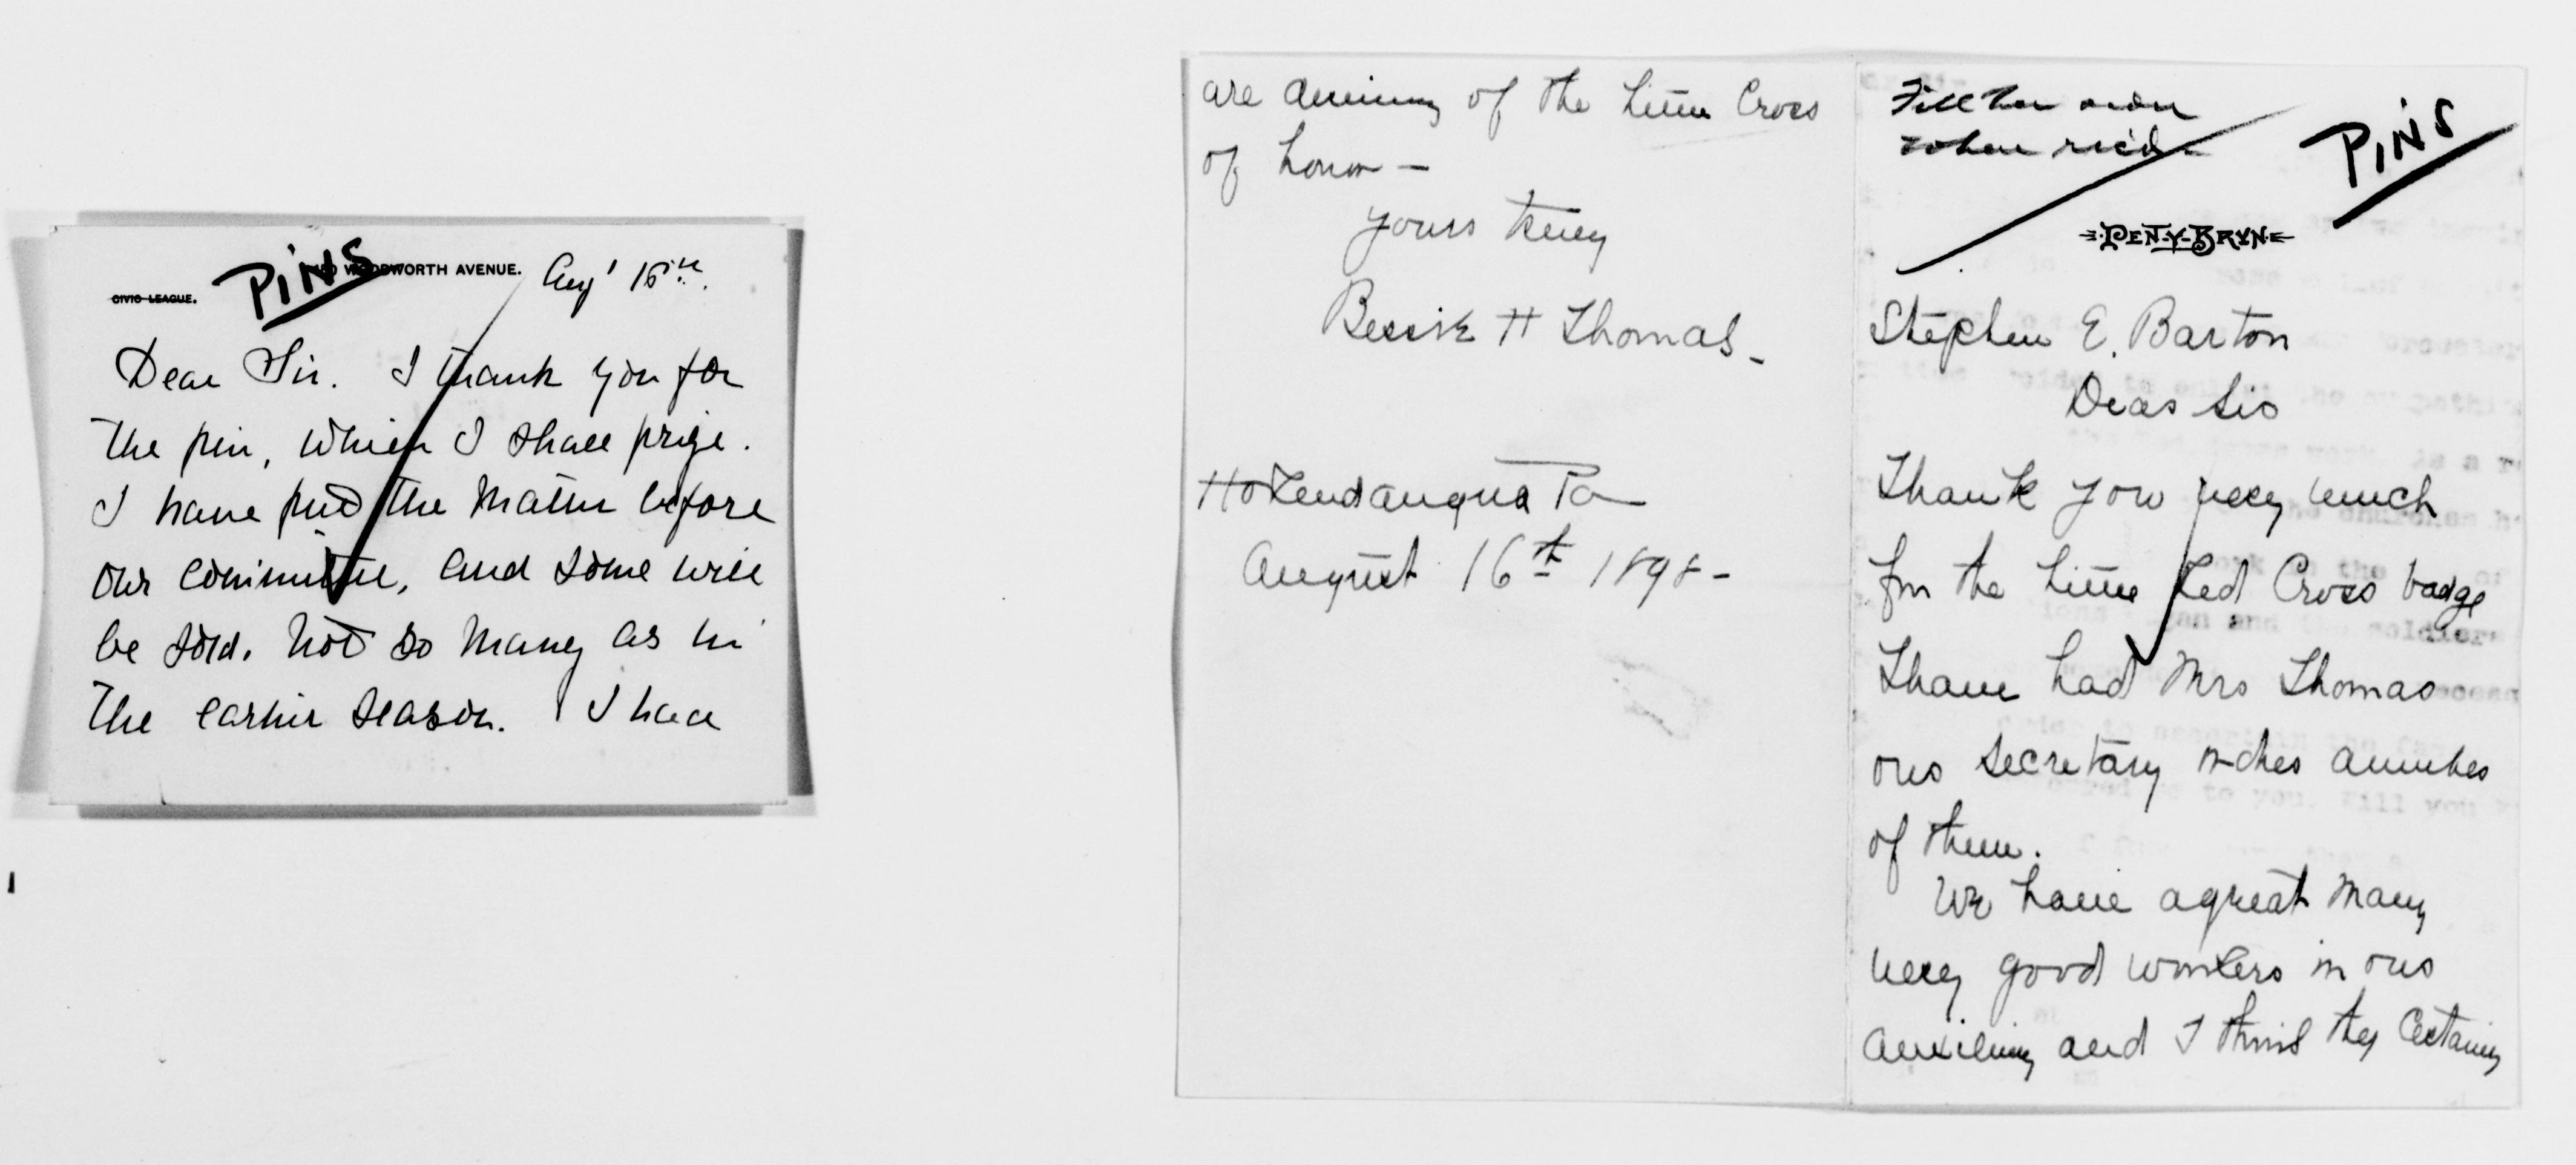 PINS
WOODWORTH AVENUE.
CIVIC LEAGUE.
Aug' 15th.
Dear Sir. I thank you for
the pin, which I shall prize.
I have put the matter before
our committee, and some will
be sold. Not so many as in
the earlier season. I have
are deserving of the little Cross
of honor –
yours truly
Bessie H Thomas –
Hokendauqua Pa
August 16th 1898 –
Fill her order
when rec'd –
PINS
PEN-Y-BRYN
Stephen E. Barton
Dear Sir
Thank you very much
for the little Red Cross badge
I have had Mrs Thomas
our secretary order a number
of them.
We have a great many
very good workers in our
auxiliary and I think they certainly